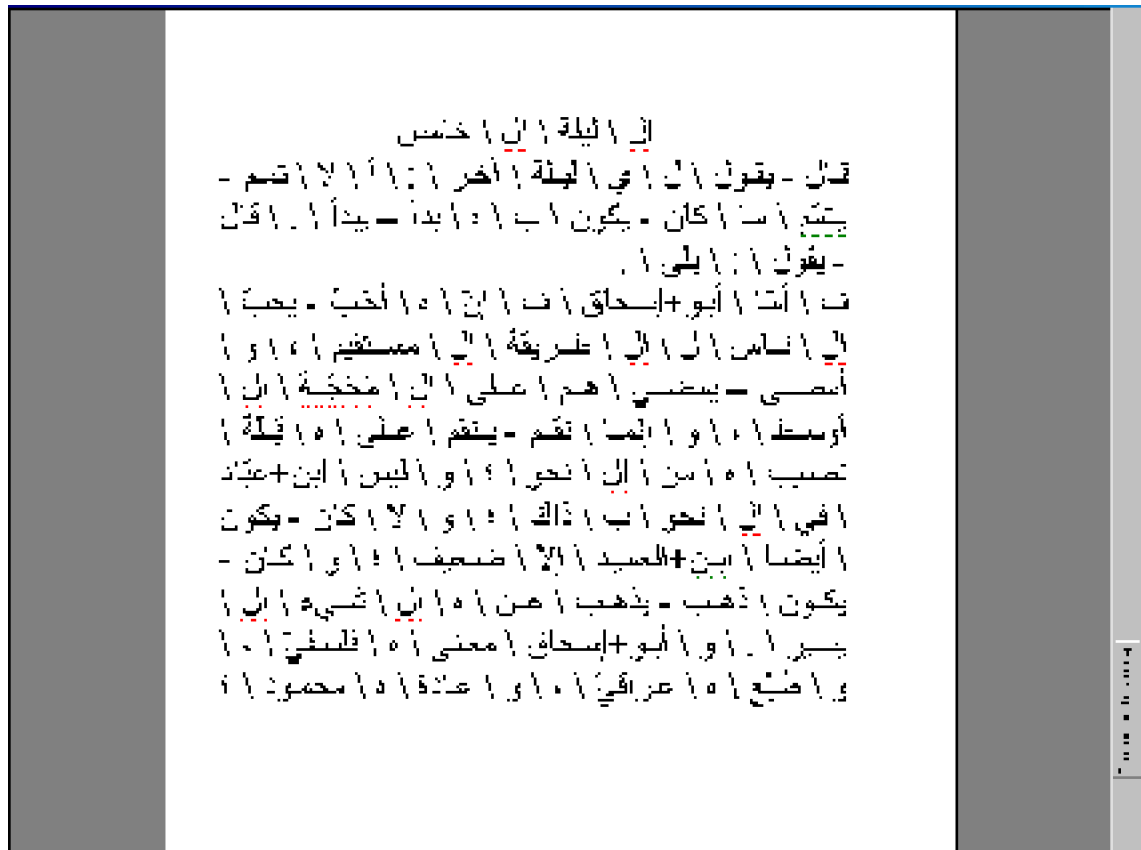 ال \ ليلة \ ال \ خامس
قال - يقول \ ل \ ي \ ليلة \ أخر \ : \ أ \ لا \ تتم -
يتمّم \ ما \ كان - يكون \ ب \ ه \ بدأ – يبدأ \ . \ قال
- يقول \ : \ بلى \ .
ف \ أمّا \ أبو+إسحاق \ ف \ إنّ \ ه \ أحبّ - يحبّ \
ال \ ناس \ ل \ ال \ طريقة \ ال \ مستقيم \ ، \ و \
أمضى – يمضي \ هم \ على \ ال \ محجّة \ ال \
أوسط \ ، \ و \ إنّما \ نقم - ينقم \ على \ ه \ قلّة \
نصيب \ ه \ من \ ال \ نحو \ ؛ \ و \ ليس \ ابن+عبّاد
\ في \ ال \ نحو \ ب \ ذاك \ ؛ \ و \ لا \ كان - يكون
\ أيضا \ ابن+العميد \ إلا \ ضعيف \ ؛ \ و \ كان -
يكون \ ذهب - يذهب \ عن \ ه \ ال \ شيء \ ال \
يسير \ . \ و \ أبو+إسحاق \ معنى \ ه \ فلسفيّ \ ، \
و \ طبع \ ه \ عراقيّ \ ، \ و \ عادة \ ه \ محمود \ ؛